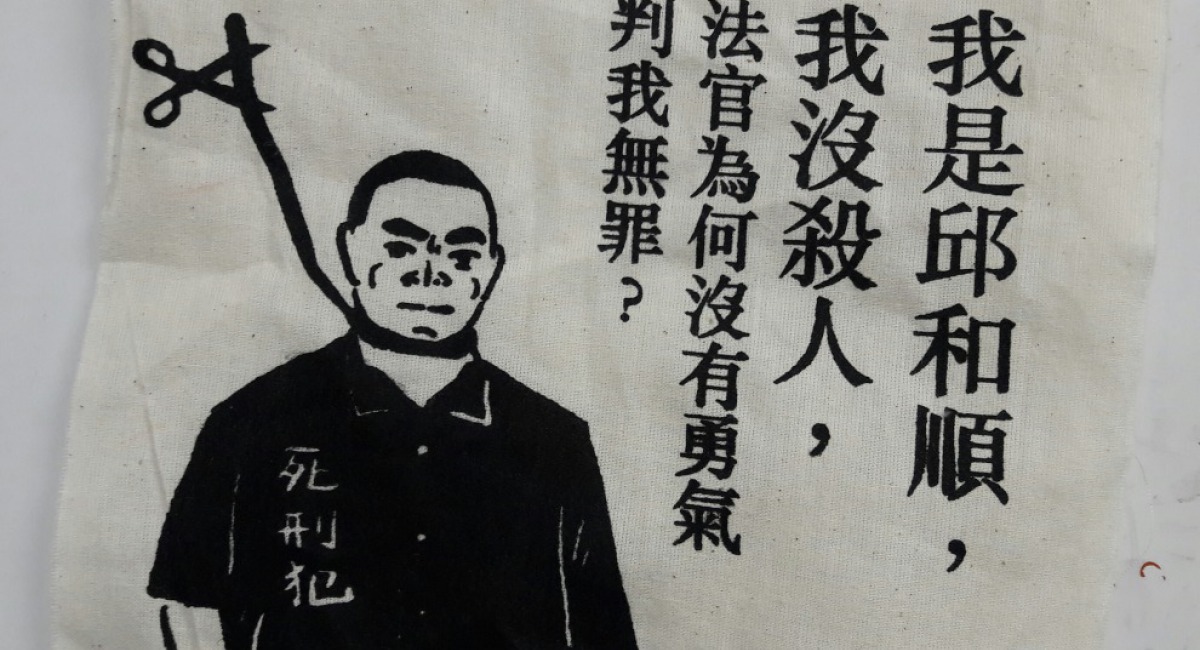 我是邱和順，
我沒殺人，
法官為何沒有勇氣
判我無罪？
死刑犯